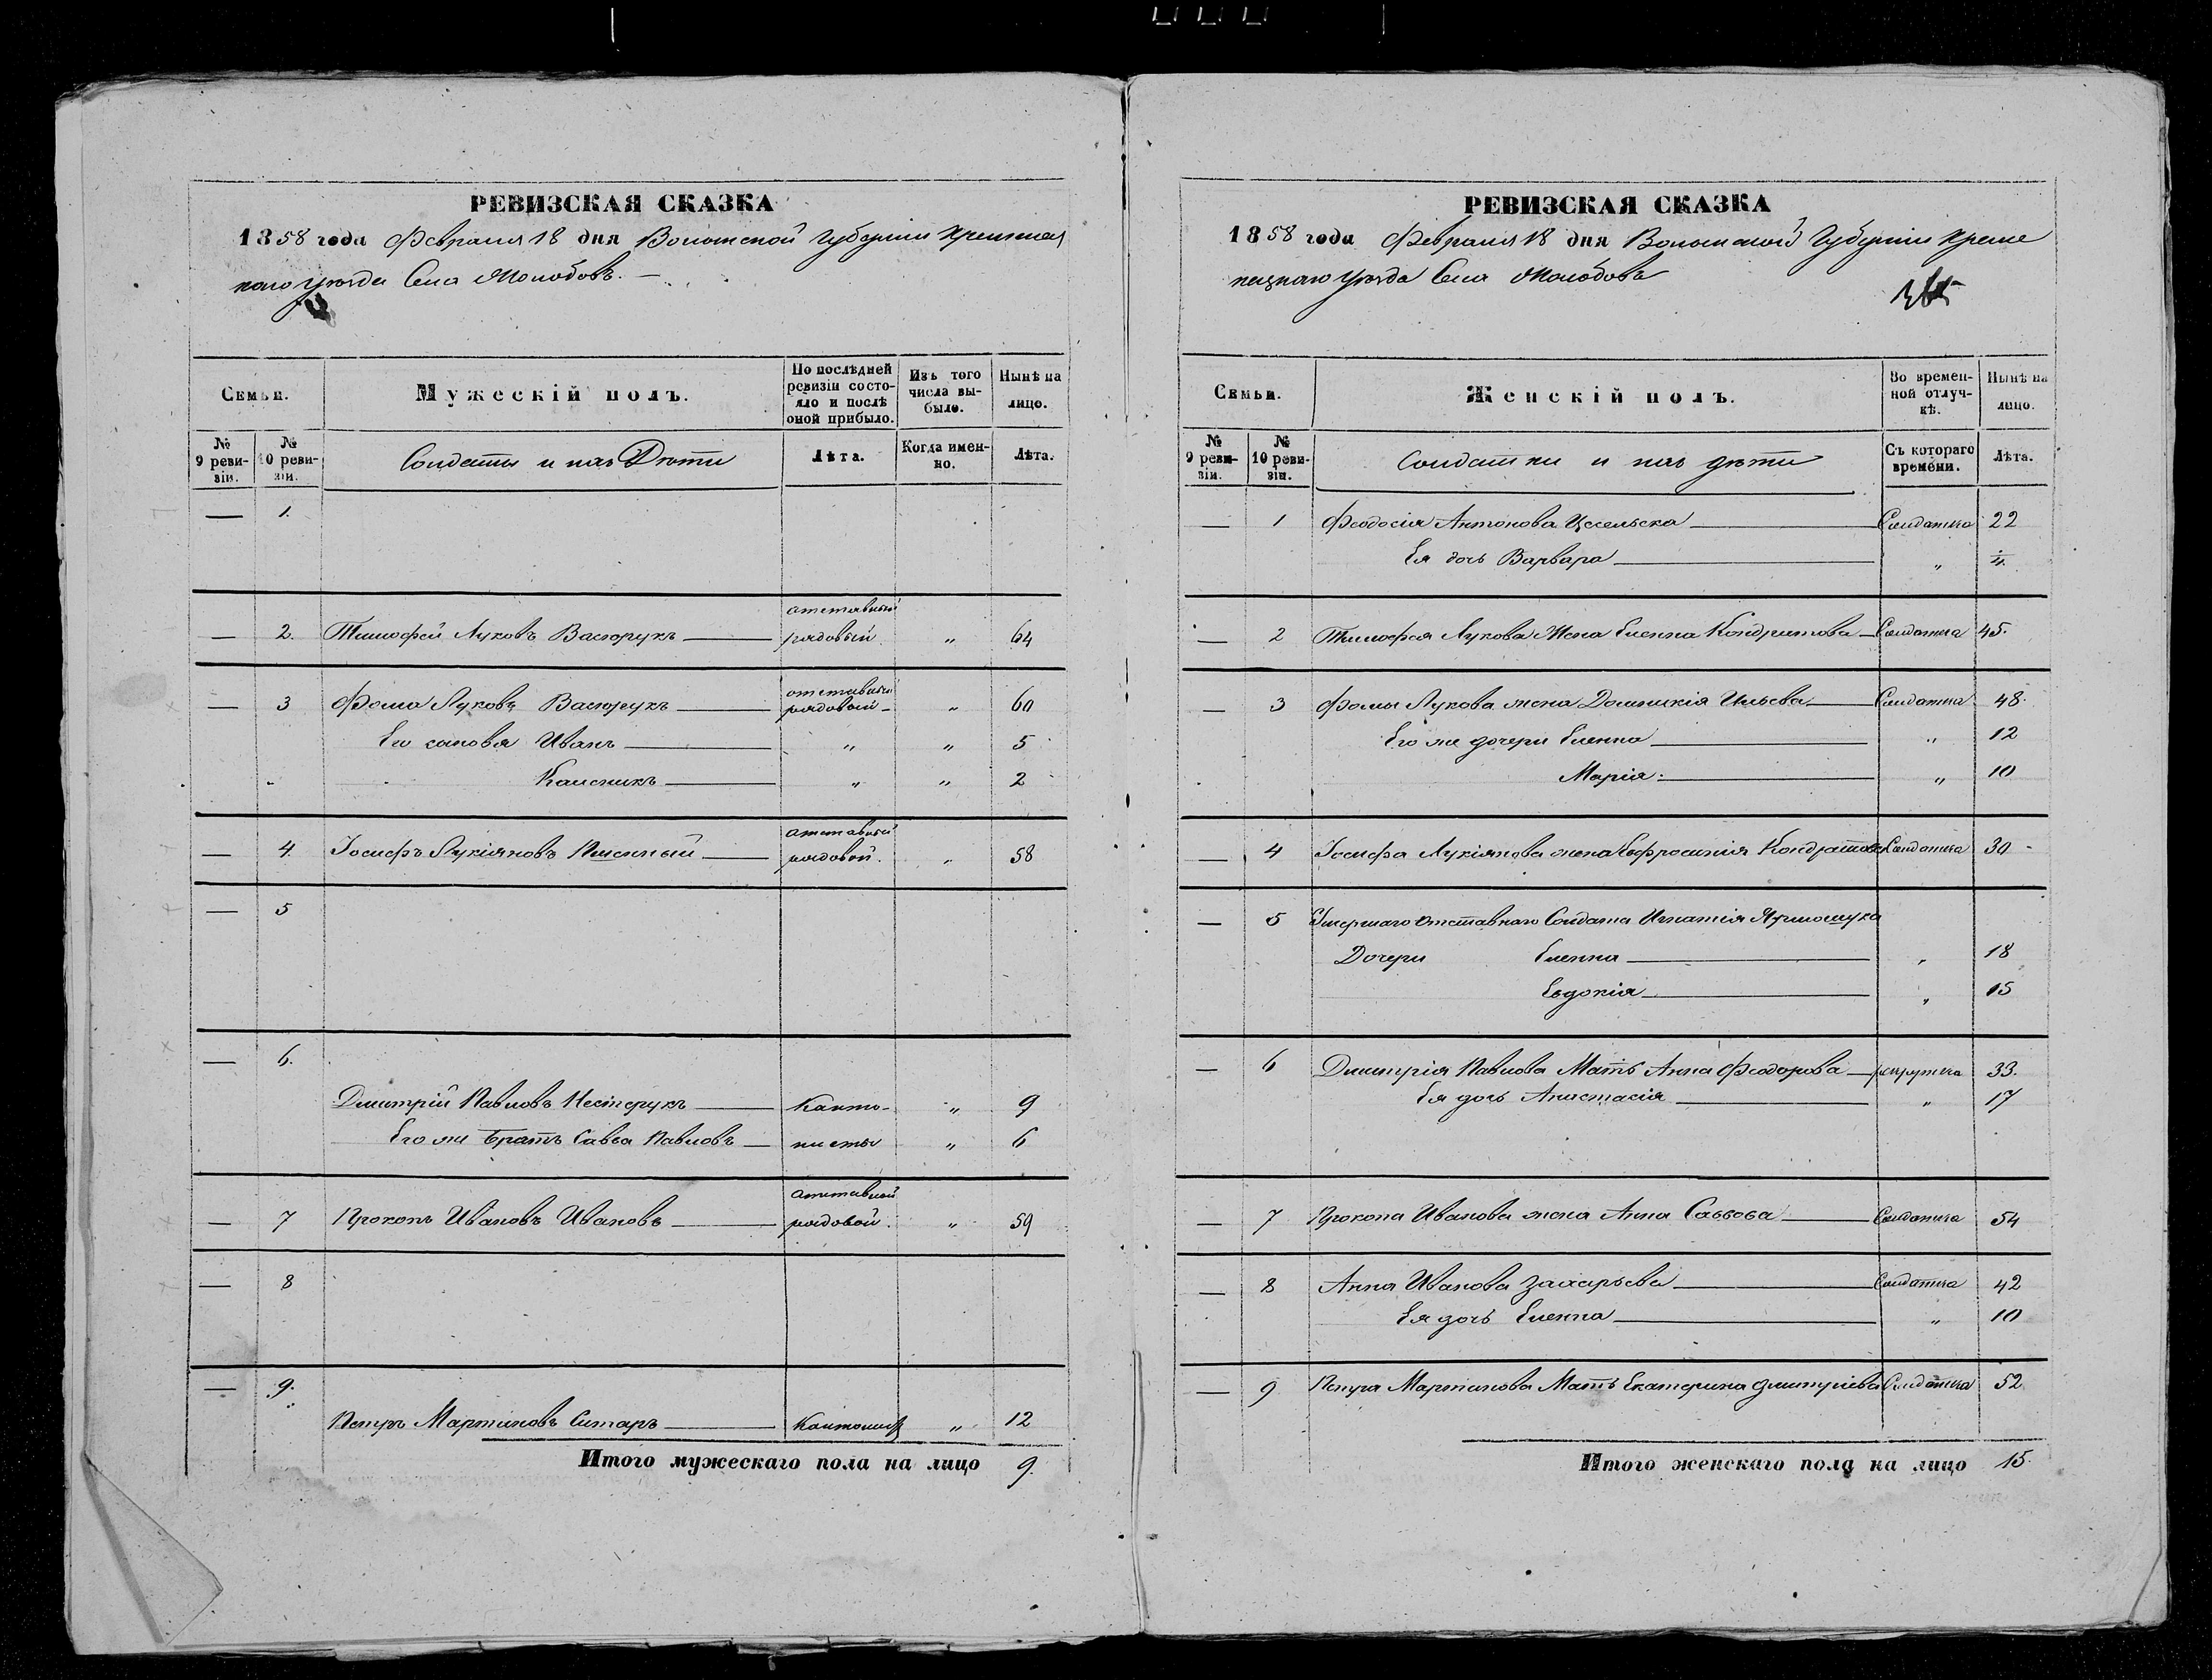 РЕВИЗСКАЯ СКАЗКА
1858 года Февраля 18 дня Волынской Губернии Кременец
каго уѣзда Села Молодовъ.
Семьи.
Мужескій полъ.
По послѣдней ревизіи состояло и послѣ оной прибыло.
Изъ того числа выбыло.
Нынѣ на лицо.
№ 9 ревизіи.
№ 10 ревизіи.
Солдаты и ихъ Дѣти
Лѣта.
Когда именно.
Лѣта.
— 1.
— 2. Тимофей Луковъ Васюрукъ отставный рядовый „ 64
— 3 Фома Луковъ Васюрукъ отставный рядовый „ 60
Его сыновья Иванъ „ „ 5
„ „ 2
— 4. Іосифъ Лукіяновъ отставный рядовой „ 58
— 5
— 6.
Дмитрій Павловъ Нестерукъ Канто- „ 9
Его же Братъ Савва Павловъ нисты „ 6
— 7 Прокопъ Ивановъ Ивановъ отставный рядовой „ 59
— 8
— 9.
Петръ Мартиновъ Ситаръ Кантонист „ 12
Итого мужескаго пола на лицо 9.
РЕВИЗСКАЯ СКАЗКА
1858 года Февраля 18 дня Волынской Губерніи Креме
нецкаго уѣзда Села Молодова
Семьи.
Женскій полъ.
Во временной отлучкѣ.
Нынѣ на лицо.
№ 9 ревизіи.
№ 10 ревизіи.
Солдатки и ихъ дѣти
Съ котораго времени.
Лѣта.
— 1 Феодосія Антонова Солдатка 22
Ея дочь Варвара „
— 2 Тимофея Лукова Жена Еленна Кондратова Солдатка 45.
— 3 Фомы Лукова жена Домникія Ильева Солдатка 48.
Его же дочери Еленна „ 12
Марія. „ 10
— 4 Іосифа Лукіянова жена Евфросинія Кондратова Солдатка 30
— 5 Умершаго отставнаго Солдата Игнатія Ярмошука
Дочери Еленна „ 18
Евдокія „ 15
— 6 Дмитрія Павлова Мать Анна Феодорова рекрутка 33.
Ея дочь Анастасія „ 17
— 7 Прокопа Иванова жена Анна Саввова Солдатка 54
— 8 Анна Иванова Захарьева Солдатка 42
Ея дочь Еленна „ 10
— 9 Петра Мартинова Мать Екатерина Дмитріева Солдатка 52
Итого женскаго пола на лицо 15.